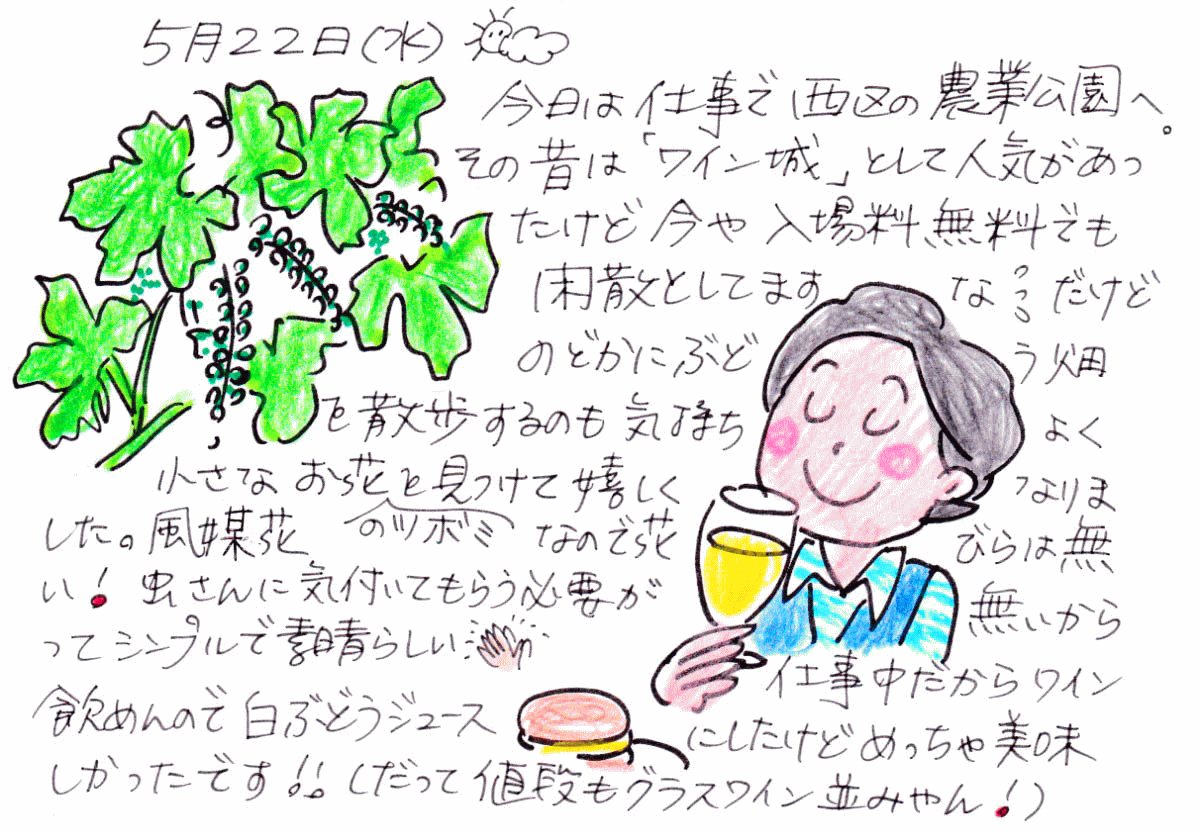 5月22日(水)
今日は仕事で西区の農業公園へ。
その昔は「ワイン城」として人気があっ
たけど今や入場料無料でも
閑散としてますな…だけど
のどかにぶどう畑
を散歩するのも気持ちよく
小さなお花を見つけて嬉しくなりま
のツボミ
した。風媒花なので花びらは無
い!虫さんに気付いてもらう必要が無いから
ってシンプルで素晴らしい
仕事中だからワイン
飲めんので白ぶどうジュースにしたけどめっちゃ美味
しかったです!!(だって値段もグラスワイン並みやん!)